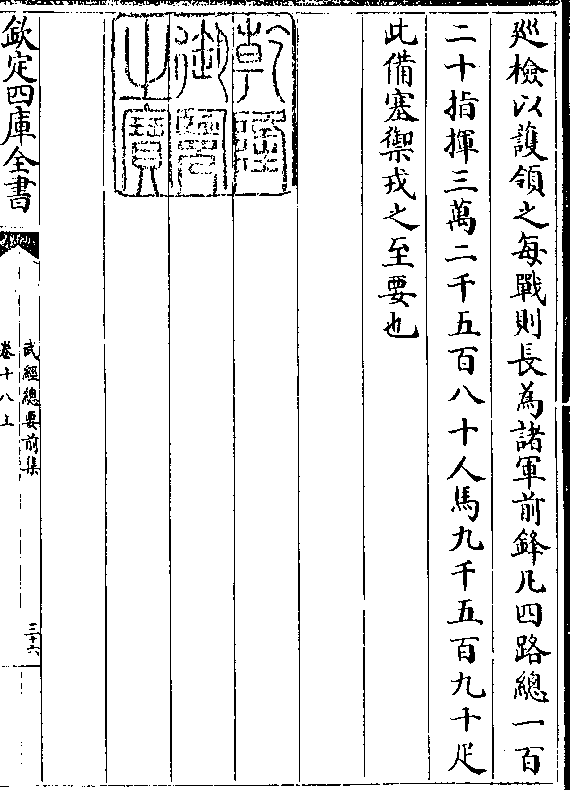 廵檢以護領之每戰則長為諸軍前鋒凡四路總一百
二十指揮三萬二千五百八十人馬九千五百九十疋
此備塞禦戎之至要也
乾隆
御覽
之寶
欽定四庫全書
武經總要前集
卷十八上
三十六